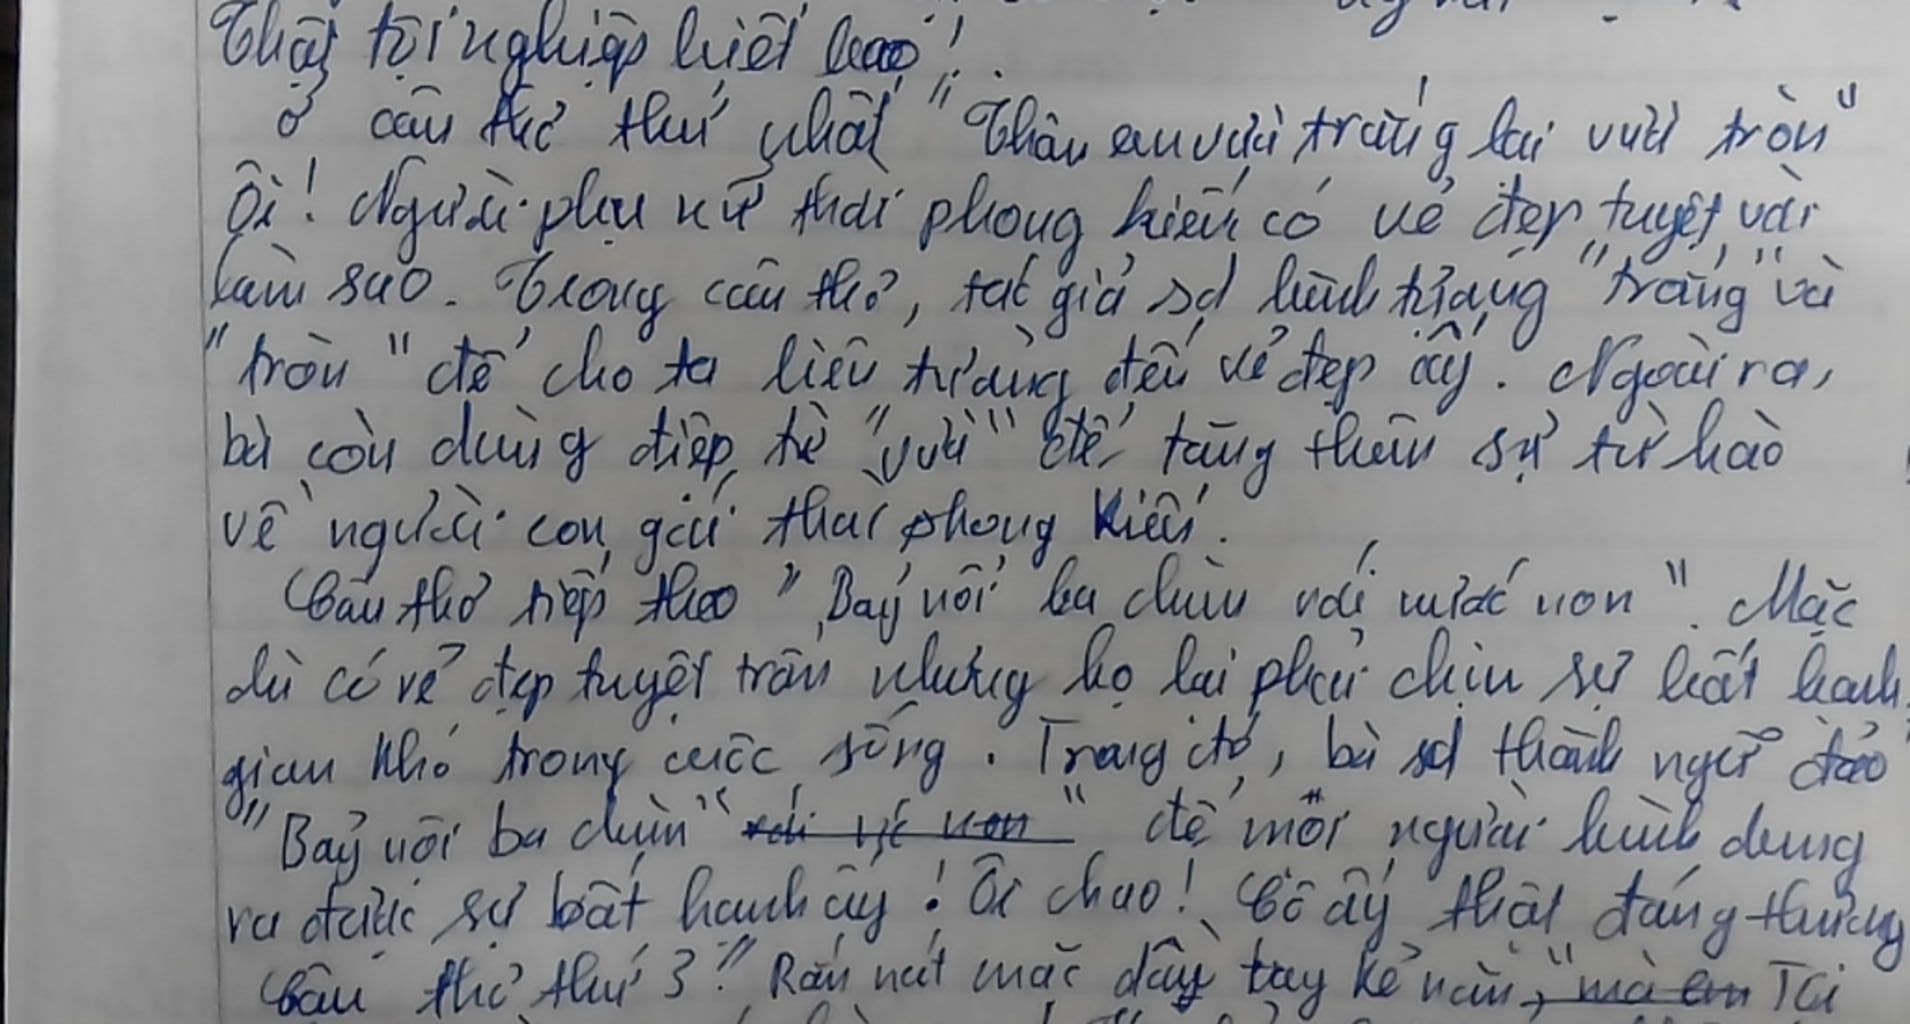 Thật tội nghiệp biết bao!
Ở câu thơ thứ nhất "Thân em vừa trắng lại vừa tròn"
Ôi! Người phụ nữ thời phong kiến có vẻ đẹp tuyệt vời
làm sao. Trong câu thơ, tác giả sd hình tượng "trắng" và
"tròn" để cho ta liên tưởng đến vẻ đẹp ấy. Ngoài ra,
bà còn dùng điệp từ "vừa" để tăng thêm sự tự hào
về người con gái thời phong kiến.
Câu thơ tiếp theo "Bảy nổi ba chìm với nước non". Mặc
dù có vẻ đẹp tuyệt trần nhưng họ lại phải chịu sự bất hạnh,
gian khó trong cuộc sống. Trong đó, bà sd thành ngữ đảo
"Bảy nổi ba chìm" để mọi người hình dung
ra được sự bất hạnh ấy! Ôi chao! Cô ấy thật đáng thương
Câu thơ thứ 3 "Rắn nát mặc dầu tay kẻ nặn," mà em Tại